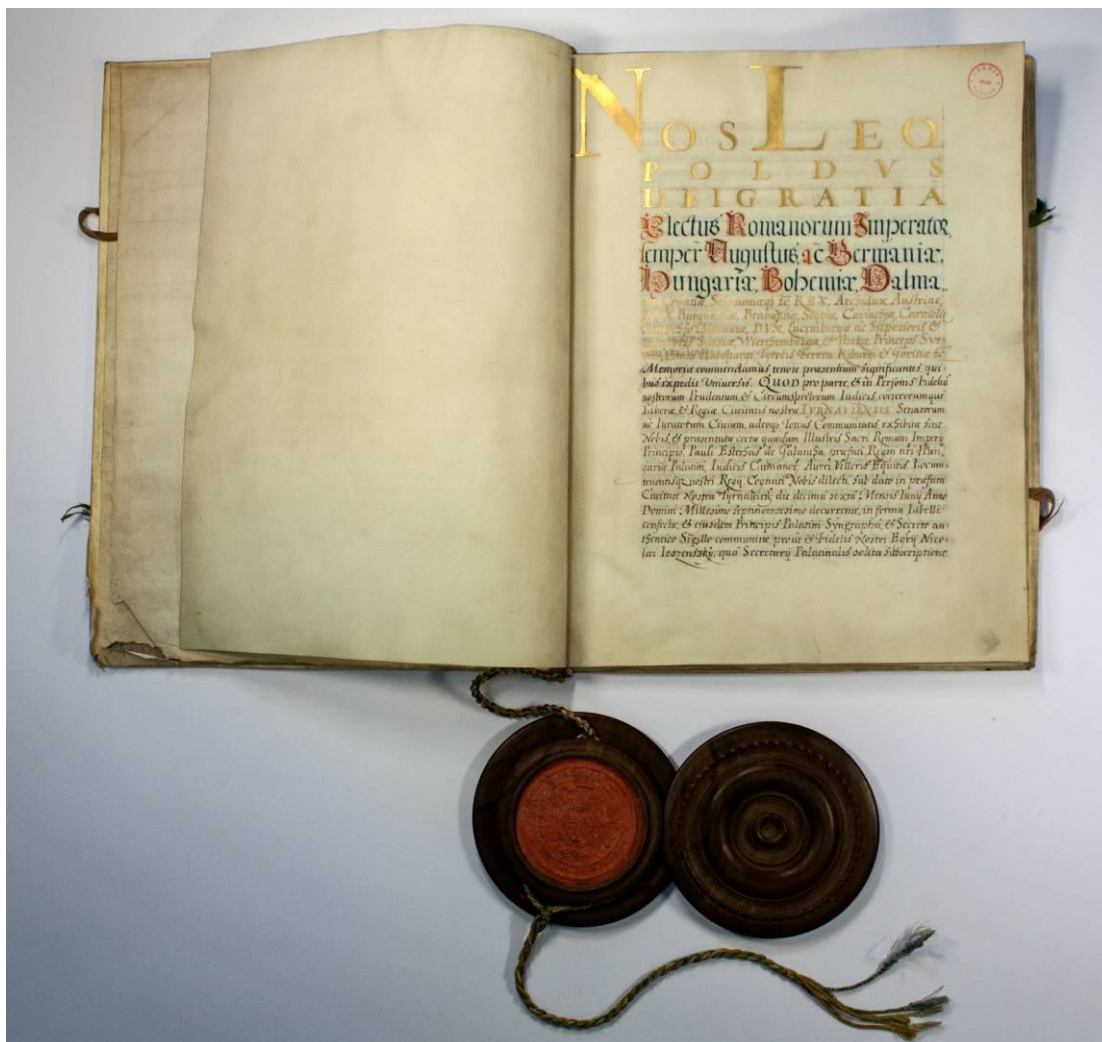 NOS LEO
POLDVS
DEI GRATIA
Electus Romanorum Imperator,
semper Augustus, ac Germaniæ,
Hungariæ, Bohemiæ, Dalma
Croatiæ, REX, Archidux Austriæ,
Burgundiæ, Brabantiæ, Styriæ, Carinthiæ, Carnioliæ
Moraviæ, DVX Lucemburgæ ac Superioris &
Silesiæ, Wierthembergæ, & Thekæ, Princeps Sve
Habspurgi, Tyrolis Ferretis Kiburgi & Goritiæ &c
Memoriæ commendamus tenore præsentium significantes, qui
bus expedit Universis. QUOD pro parte, & in Personis Fidelium
nostrorum Prudentum, & Circumspectorum Iudicis, cæterorumque
Liberæ, & Regiæ Civitatis nostræ TYRNAVIENSIS Senatorum
ac Iuratorum Civium, adeoque Totius Communitatis exhibitæ sunt
Nobis, & præsentatæ certæ quædam Illustris Sacri Romani Imperij
Principis, Pauli Esterhas de Galantha, præfati Regni nri Hun,
gariæ Palatini, Iudicis Cumanor, Aurei Velleris Equitis Locum
tenentisq nostri Regij Cognati Nobis dilecti, sub dato in præfata
Civitate Nostra Tyrnaviensi, die decima sexta Mensis Iunij Anno
Domini Millesimo septingentesimo decurrente, in forma Libelli
confectæ, & ejusdem Principis Palatini Syngrapha, & Secreto au-
thentico Sigillo communitæ, prout & Fidelis Nostri Egregij Nico-
lai quà Secretarij Palatinalis solita subscriptione